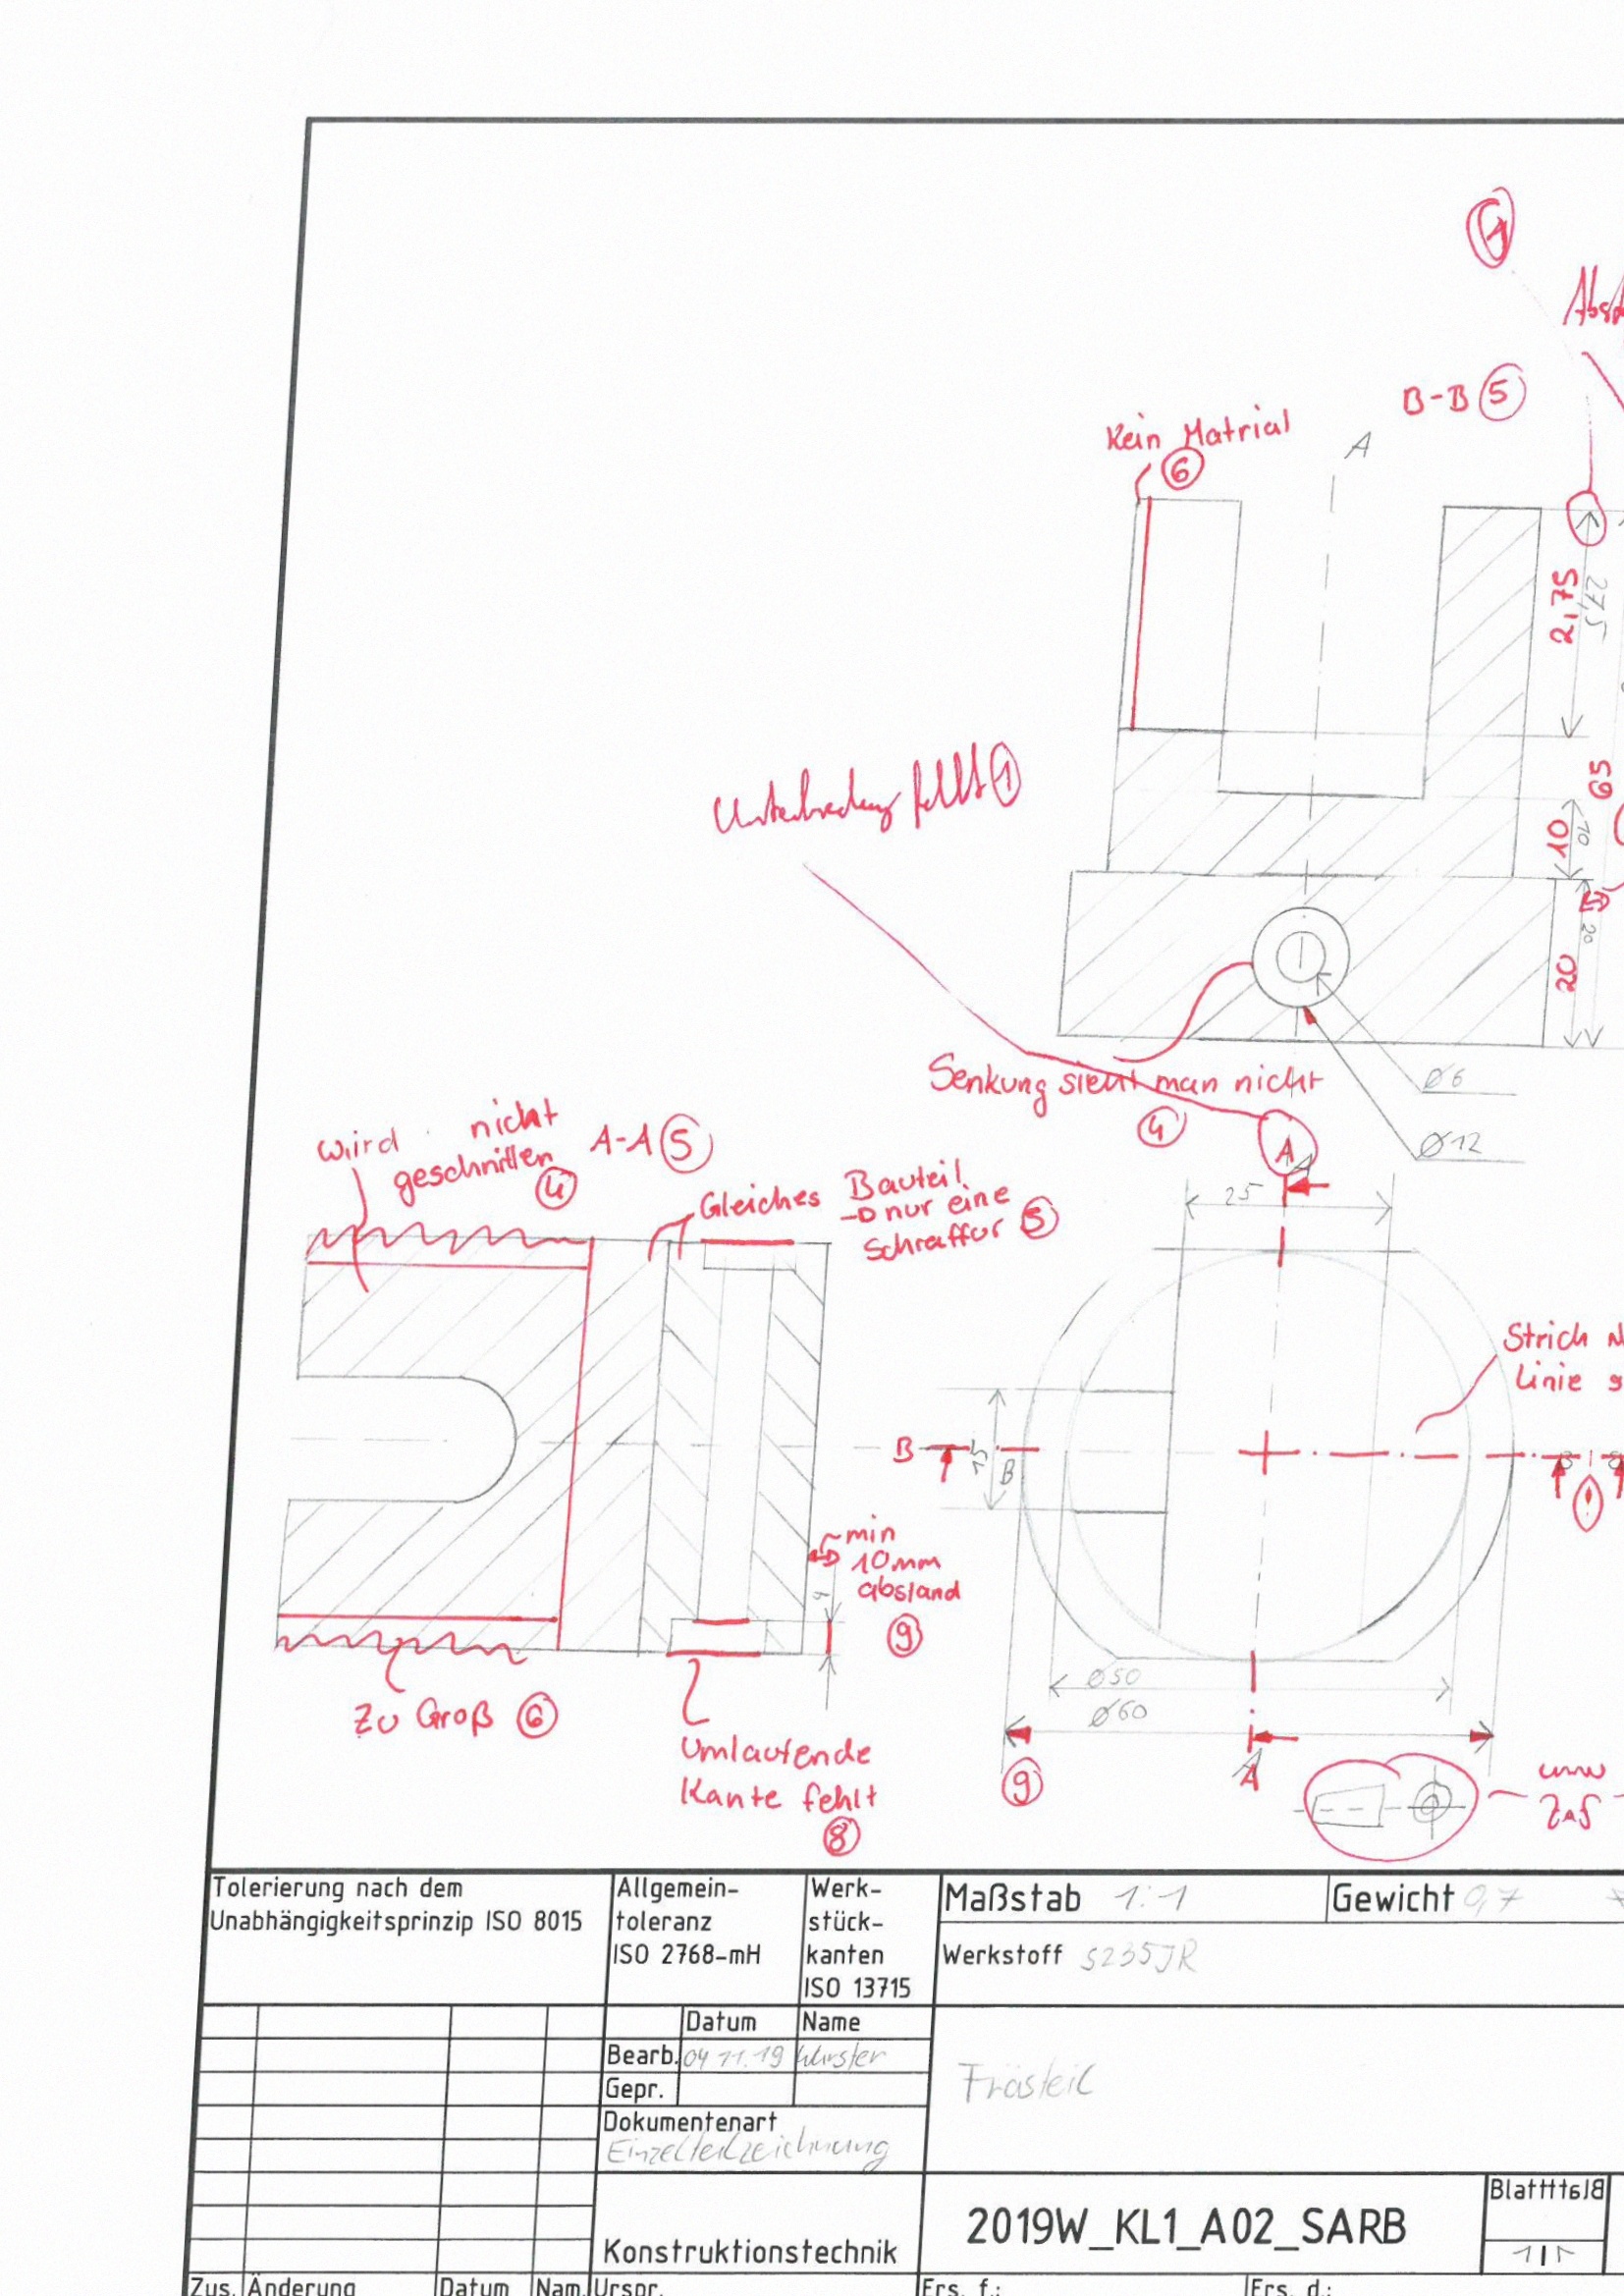 1
B-B 5
Kein Matrial
6
A
2,75
27,5
65
10
10
20
20
fehlt 1
Senkung sieht man nicht
4
Ø6
Ø12
wird nicht
geschnitten
4
A-A 5
Gleiches Bauteil
nur eine
Schraffur 5
A
25
Strich
Linie
B
15
B
min
10mm
abstand
9
4
Zu Groß 6
Umlaufende
Kante fehlt
8
Ø50
Ø60
9
A
Tolerierung nach dem
Unabhängigkeitsprinzip ISO 8015
Allgemein-
toleranz
ISO 2768-mH
Werk-
stück-
kanten
ISO 13715
Maßstab 1:1
Gewicht 0,7
Werkstoff S235JR
Datum Name
Bearb. 04.11.19 Wurster
Gepr.
Dokumentenart
Einzelteilzeichnung
Frästeil
Konstruktionstechnik
2019W_KL1_A02_SARB
Zus. Änderung Datum Nam. Urspr. Ers. f.: Ers. d.: